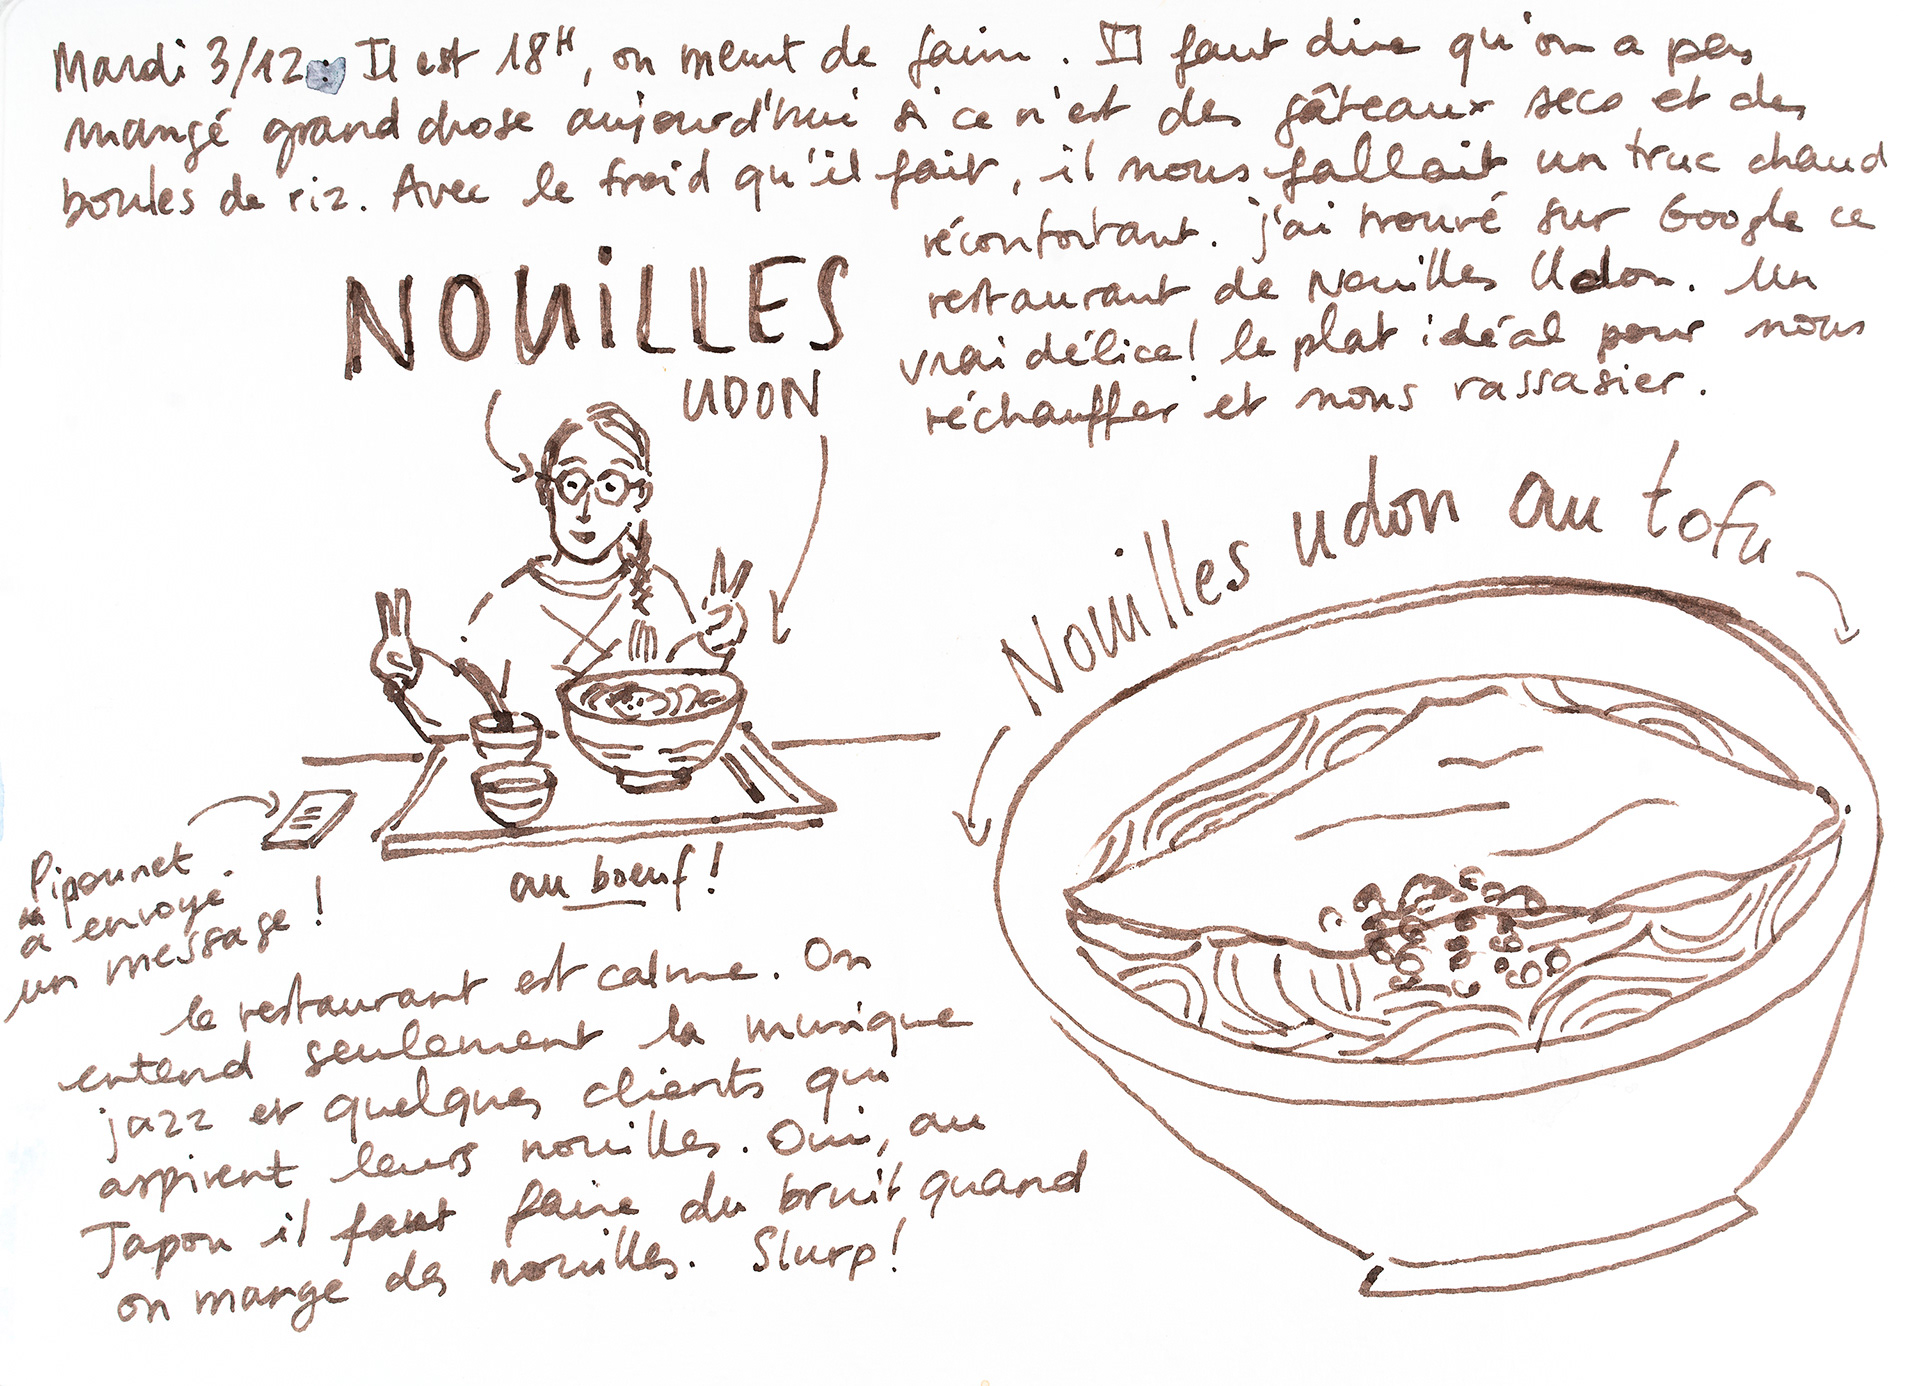 Mardi 3/12. Il est 18H, on meurt de faim. Il faut dire qu'on a pas
mangé grand chose aujourd'hui si ce n'est des gâteaux secs et des
boules de riz. Avec le froid qu'il fait, il nous fallait un truc chaud
réconfortant. j'ai trouvé sur Google ce
restaurant de Nouilles Udon. Un
vrai délice! le plat idéal pour nous
réchauffer et nous rassasier.
NOUiLLES
UDON
Nouilles udon au tofu
Pipounet
a envoyé
un message!
au boeuf!
le restaurant est calme. On
entend seulement la musique
jazz et quelques clients qui
aspirent leurs nouilles. Oui, au
Japon il faut faire du bruit quand
on mange des nouilles. Slurp!